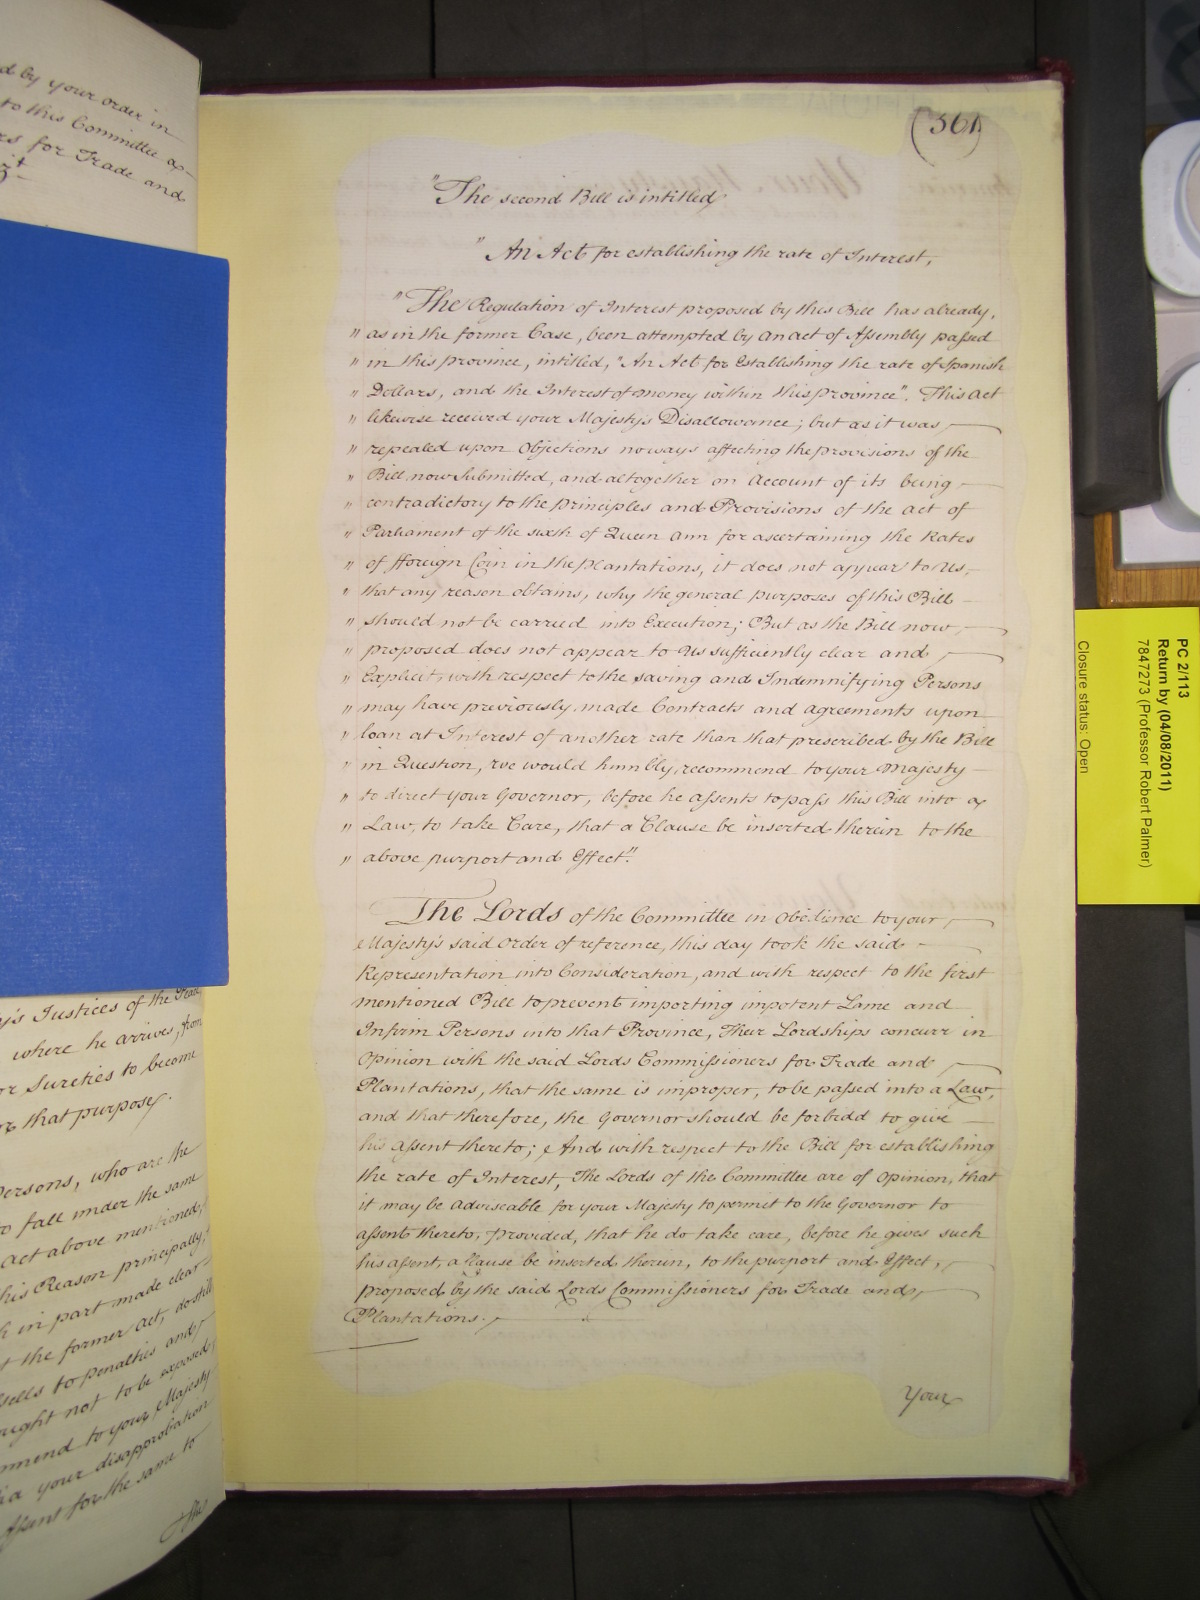 d by your order in
to this Committee as
rs for Trade and
(361)
"The second Bill is intitled
" An Act for establishing the rate of Interest,
"The Regulation of Interest proposed by this Bill has already,
" as in the former Case, been attempted by an act of Assembly passed
" in this province, intitled, "An Act for Establishing the rate of Spanish
" Dollars, and the Interest of money within this province". This act
" likewise received your Majesty's Disallowance; but as it was
" repealed upon Objections noways affecting the provisions of the
" Bill now Submitted, and altogether on Account of its being
" contradictory to the principles and Provisions of the act of
" Parliament of the sixth of Queen Ann for ascertaining the Rates
" of fforeign Coin in the plantations, it does not appear to Us,
" that any reason obtains, why the general purposes of this Bill
" should not be carried into Execution; But as the Bill now
" proposed does not appear to Us sufficiently clear and
" Explicit, with respect to the saving and Indemnifying Persons
" may have previously made Contracts and agreements upon
" loan at Interest of another rate than that prescribed by the Bill
" in Question, we would humbly recommend to your Majesty
" to direct your Governor, before he assents to pass this Bill into a
" Law, to take Care, that a Clause be inserted therein to the
" above purport and Effect."
The Lords of the Committee in obedience to your
Majesty's said order of reference, this day took the said
Representation into Consideration, and with respect to the first
mentioned Bill to prevent importing impotent Lame and
Infirm Persons into that Province, Their Lordships concurr in
Opinion with the said Lords Commissioners for Trade and
Plantations, that the same is improper, to be passed into a Law,
and that therefore, the Governor should be forbidd to give
his assent thereto; And with respect to the Bill for establishing
the rate of Interest, The Lords of the Committee are of opinion, that
it may be adviseable for your Majesty to permit to the Governor to
assent thereto, Provided, that he do take care, before he gives such
his assent, a Clause be inserted therein, to the purport and Effect,
proposed by the said Lords Commissioners for Trade and
Plantations.
Your
y's Justices of the Peace
where he arrives, from
or Sureties to become
or that purpose.
Persons, who are the
o fall under the same
Act above mentioned
his Reason principally,
h in part made clear
t the former act, do still
sells to penalties and
ought not to be exposed
mmend to your Majesty
your disapprobation
Assent for the same to
The
PC 2/113
Return by (04/08/2011)
7847273 (Professor Robert Palmer)
Closure status: Open